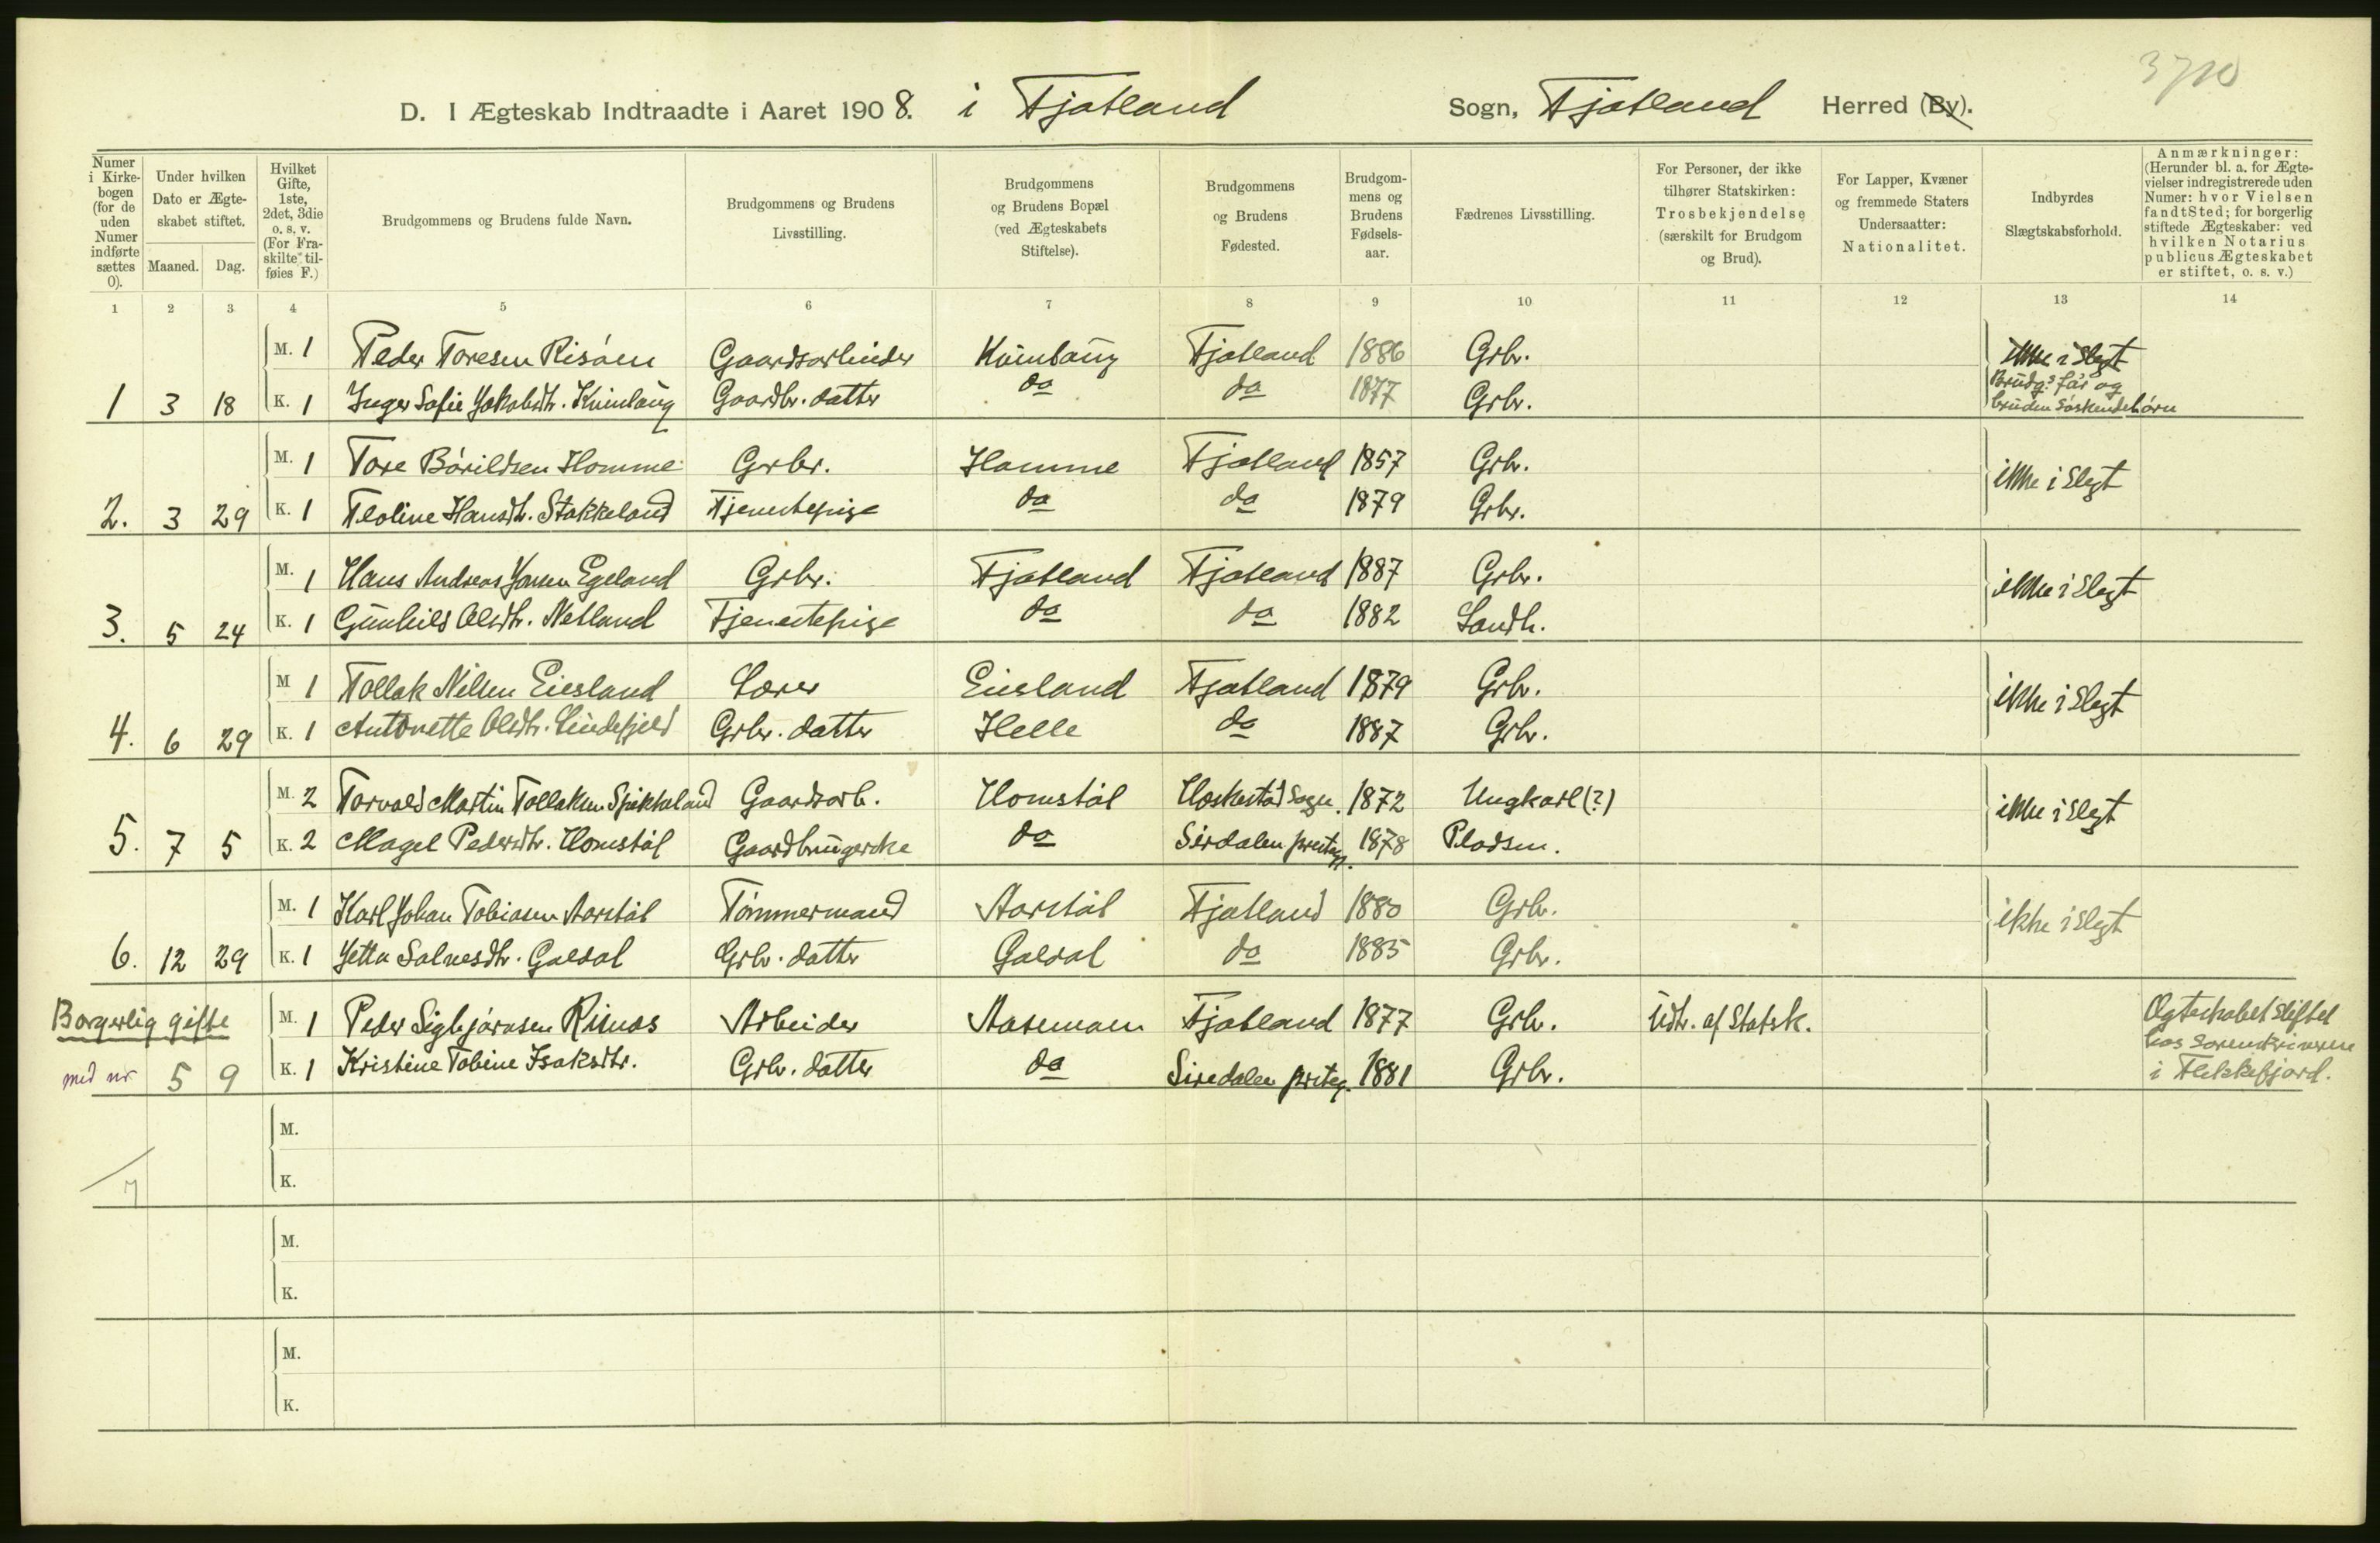 3710
D. I Ægteskab Indtraadte i Aaret 1908. i Fjotland Sogn, Fjotland Herred (By).
Numer i Kirkebogen (for de uden Numer indførte sættes 0).
Under hvilken Dato er Ægteskabet stiftet.
Maaned. Dag.
Hvilket Gifte, 1ste, 2det, 3die o. s. v. (For Fraskilte tilføies F.)
Brudgommens og Brudens fulde Navn.
Brudgommens og Brudens Livsstilling.
Brudgommens og Brudens Bopæl (ved Ægteskabets Stiftelse).
Brudgommens og Brudens Fødested.
Brudgommens og Brudens Fødselsaar.
Fædrenes Livsstilling.
For Personer, der ikke tilhører Statskirken: Trosbekjendelse (særskilt for Brudgom og Brud).
For Lapper, Kvæner og fremmede Staters Undersaatter: Nationalitet.
Indbyrdes Slægtskabsforhold.
Anmærkninger: (Herunder bl. a. for Ægtevielser indregistrerede uden Numer: hvor Vielsen fandt Sted; for borgerlig stiftede Ægteskaber: ved hvilken Notarius publicus Ægteskabet er stiftet, o. s. v.)
1 2 3 4 5 6 7 8 9 10 11 12 13 14
M. 1 Peder Toresen Risóen Gaardsarbeider Kvinlaug Fjotland 1886 Grbr. ikke i Slegt
1 3 18 K. 1 Inger Sofie Jakobsdtr. Kvinlaug Gaardbr. datter do do 1877 Grbr. Brudg.s far og bruden Søskendebörn
M. 1 Tore Bórildsen Homme Grbr. Homme Fjotland 1857 Grbr. ikke i Slegt
2. 3 29 K. 1 Teoline Hansdtr. Stakkeland Tjenestepige do do 1879 Grbr.
M. 1 Hans Andreas Jonsen Egeland Grbr. Fjotland Fjotland 1887 Grbr. ikke i Slegt
3. 5 24 K. 1 Gunhild Olsdtr. Netland Tjenestepige do do 1882 Landh.
M 1 Tollak Nilsen Eiesland Lærer Eiesland Fjotland 1879 Grbr. ikke i Slegt
4. 6 29 K. 1 Antonette Olsdtr. Lindefjeld Grbr. datter Helle do 1887 Grbr.
M. 2 Torvald Martin Tollaksen Gaardsarb. Homstøl Hæskestad Sogn. 1872 Ungkarl (?) ikke i Slegt
5. 7 5 K. 2 Magel Pedersdtr. Homstøl Gaardbrugerske do Sirdalen prestegj. 1878 Pladsm.
M. 1 Karl Johan Tobiasen Aarstøl Tómmermand Aarstøl Fjotland 1880 Grbr. ikke i Slegt
6. 12 29 K. 1 Jetta Salvesdtr. Galdal Grbr. datter Galdal do 1885 Grbr.
Borgerlig gifte M. 1 Peder Sigbjörnsen Risnes Arbeider Aamemoen Fjotland 1877 Grbr. Udtr. af Statsk. Ægteskabet stiftet
hos Sorenskriveren
med nr 5 9 K. 1 Kristine Tobine Isaksdtr. Grbr. datter do Siredalen prsteg. 1881 Grbr. i Flekkefjord.
M.
7 K.
M.
K.
M.
K.